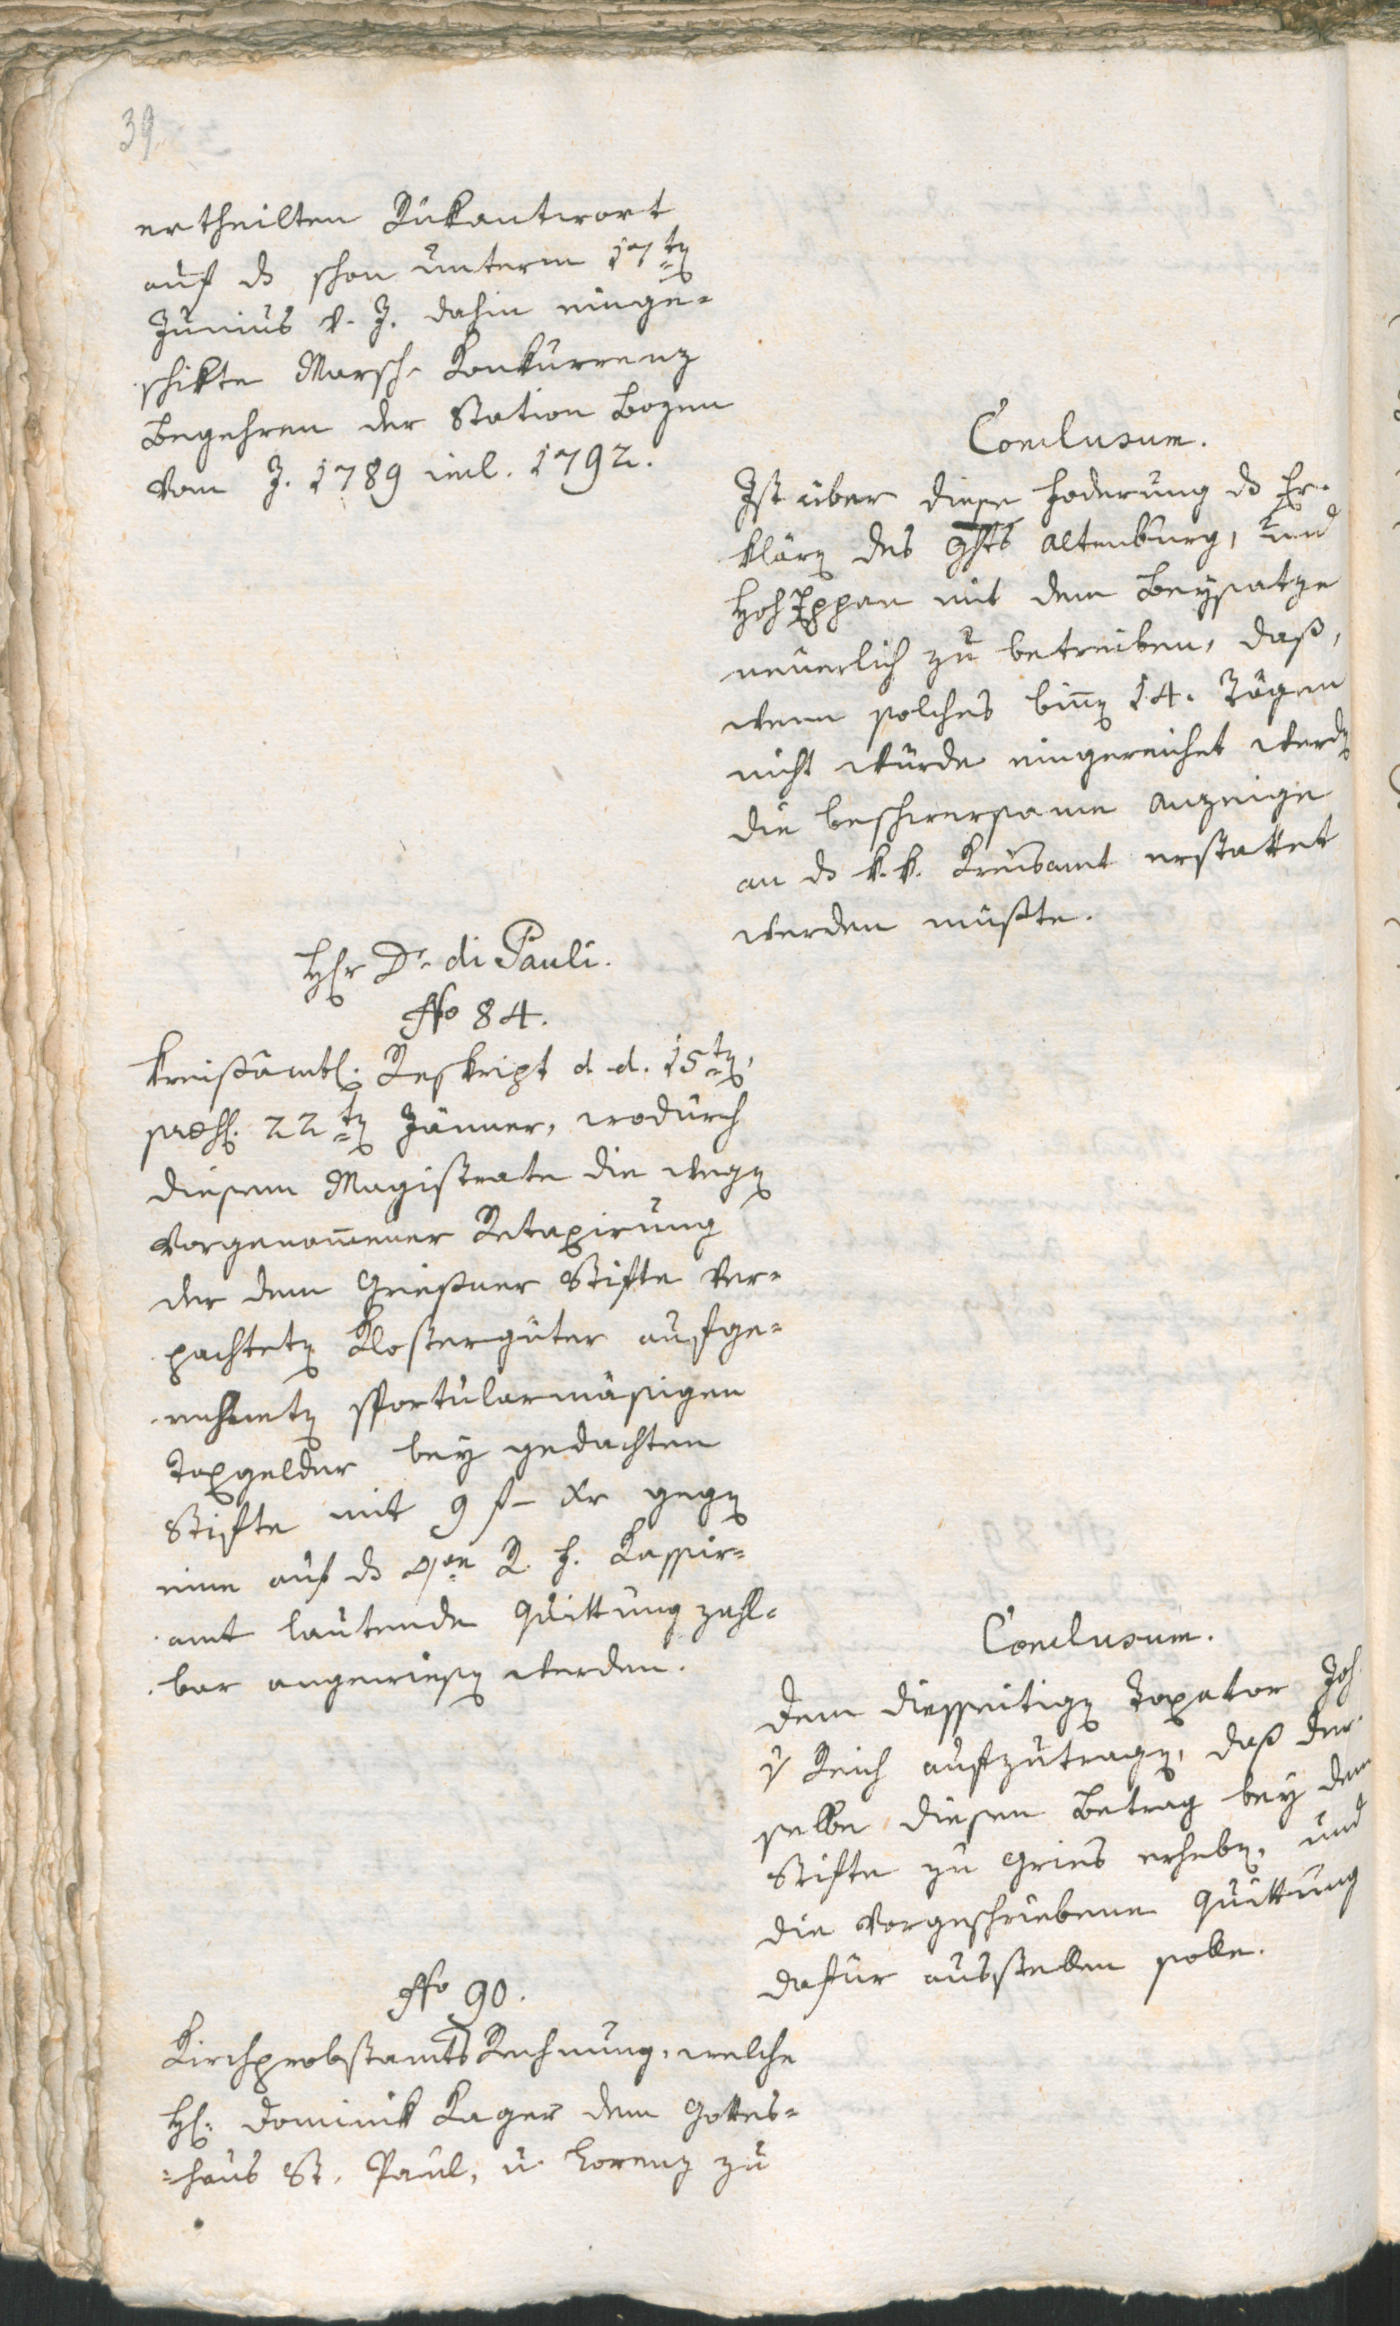 39.
ertheilten Rükantwort
auf ds schon unterm 17ten
Junius v. J. dahin einge=
schikte Marsch= Konkurrenz
Begehren der Station Bozen
vom J. 1789 incl. 1792.
Conclusum.
Ist über diese Foderung ds Er=
klären des Ghts Altenburg, und
HohEppan mit dem Beysatze
neuerlich zu betreiben, daß,
wenn solches binnen 14. Tägen
nicht würde eingereichet werden
die beschwersame Anzeige
an ds k. k. Kreisamt erstattet
werden müßte.
Hr Dr di Pauli.
No 84.
Kreisämtl. Reskript d. d. 15ten,
praes. 22ten Jänner, wodurch
diesem Magistrate die wegen
vorgenommener Retaxirung
der dem Grießner Stifte ver=
pachteten Klostergüter aufge=
rechneten sportularmäsigen
Taxgelder bey gedachten
Stifte mit 9 f – xr gegen
eine auf ds R. F. Kassier=
amt lautende Quittung zahl=
bar angewiesen werden.
Conclusum.
Dem diesseitigen Taxator Joh.
v Reich aufzutragen, daß der=
selbe diesen Betrag bey dem
Stifte zu Gries erheben, und
die vorgeschriebene Quittung
dafür ausstellen solle.
No 90.
Kirchprobstamts Rechnung, welche
H. Dominik Kager dem Gottes=
=haus St. Paul, u. Lorenz zu